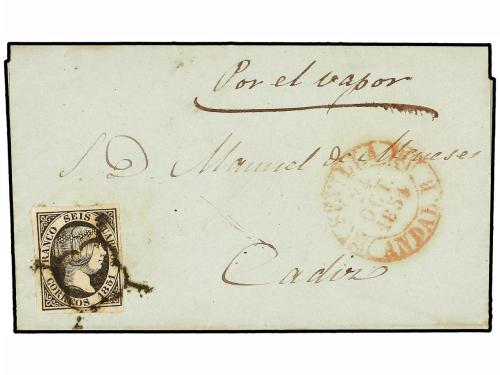 Por el vapor
S. D. Manuel de Meneses
OCT
1851
ANDAL
Cadiz
FRANCO SEIS CUARTOS
CORREOS 1851